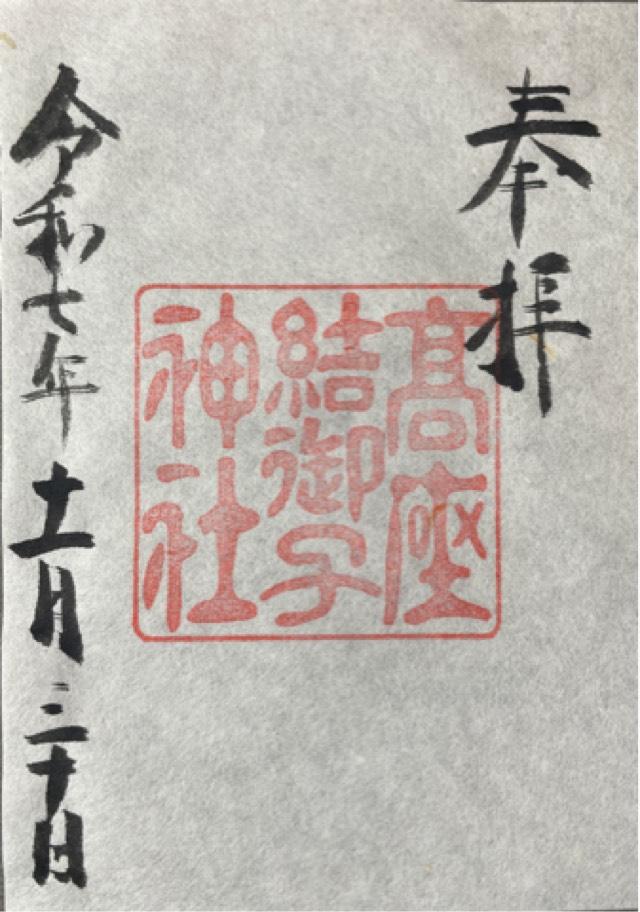 奉拝
髙座
結御子
神社
令和七年十一月三十日